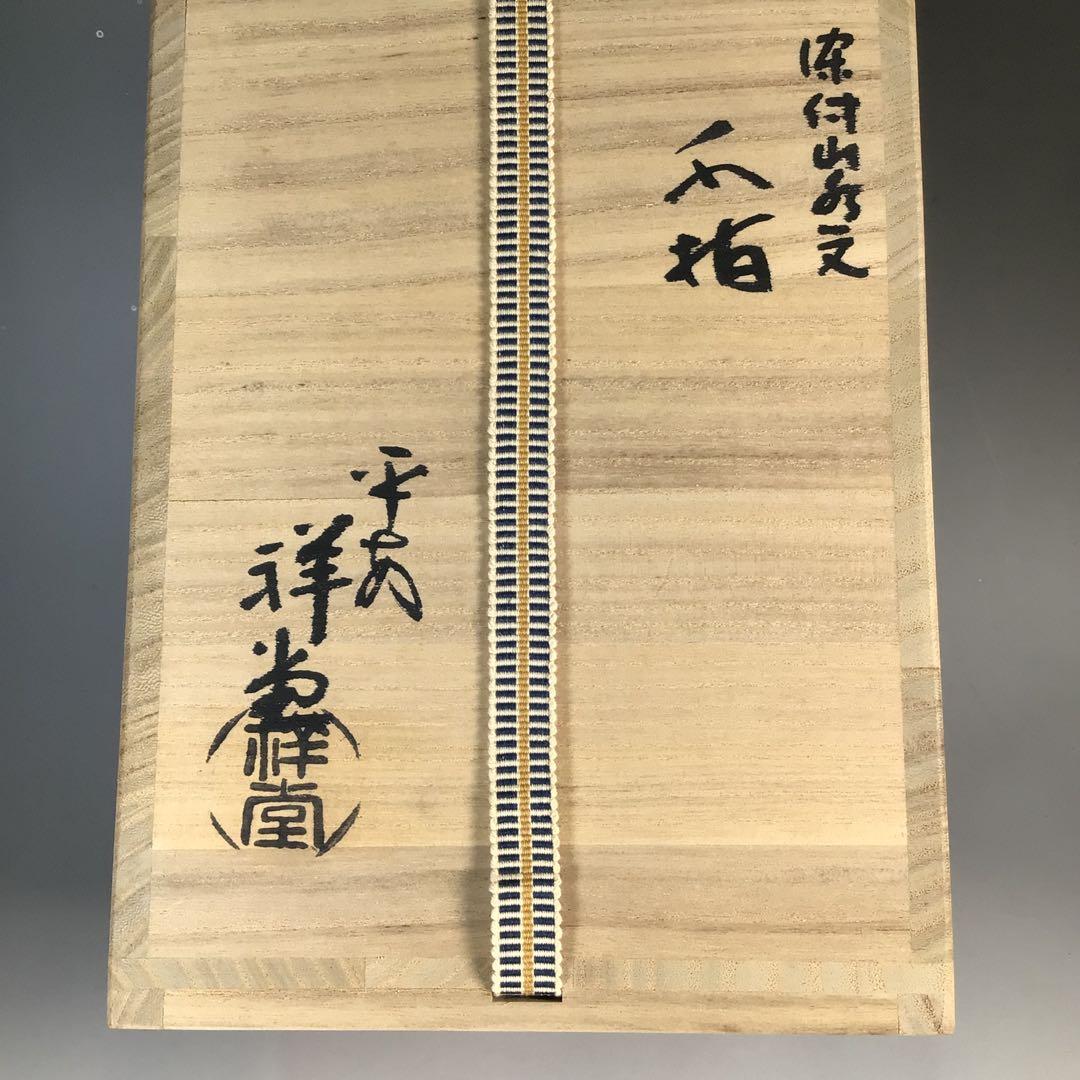 染付山水文
水指
平安
祥堂
祥堂